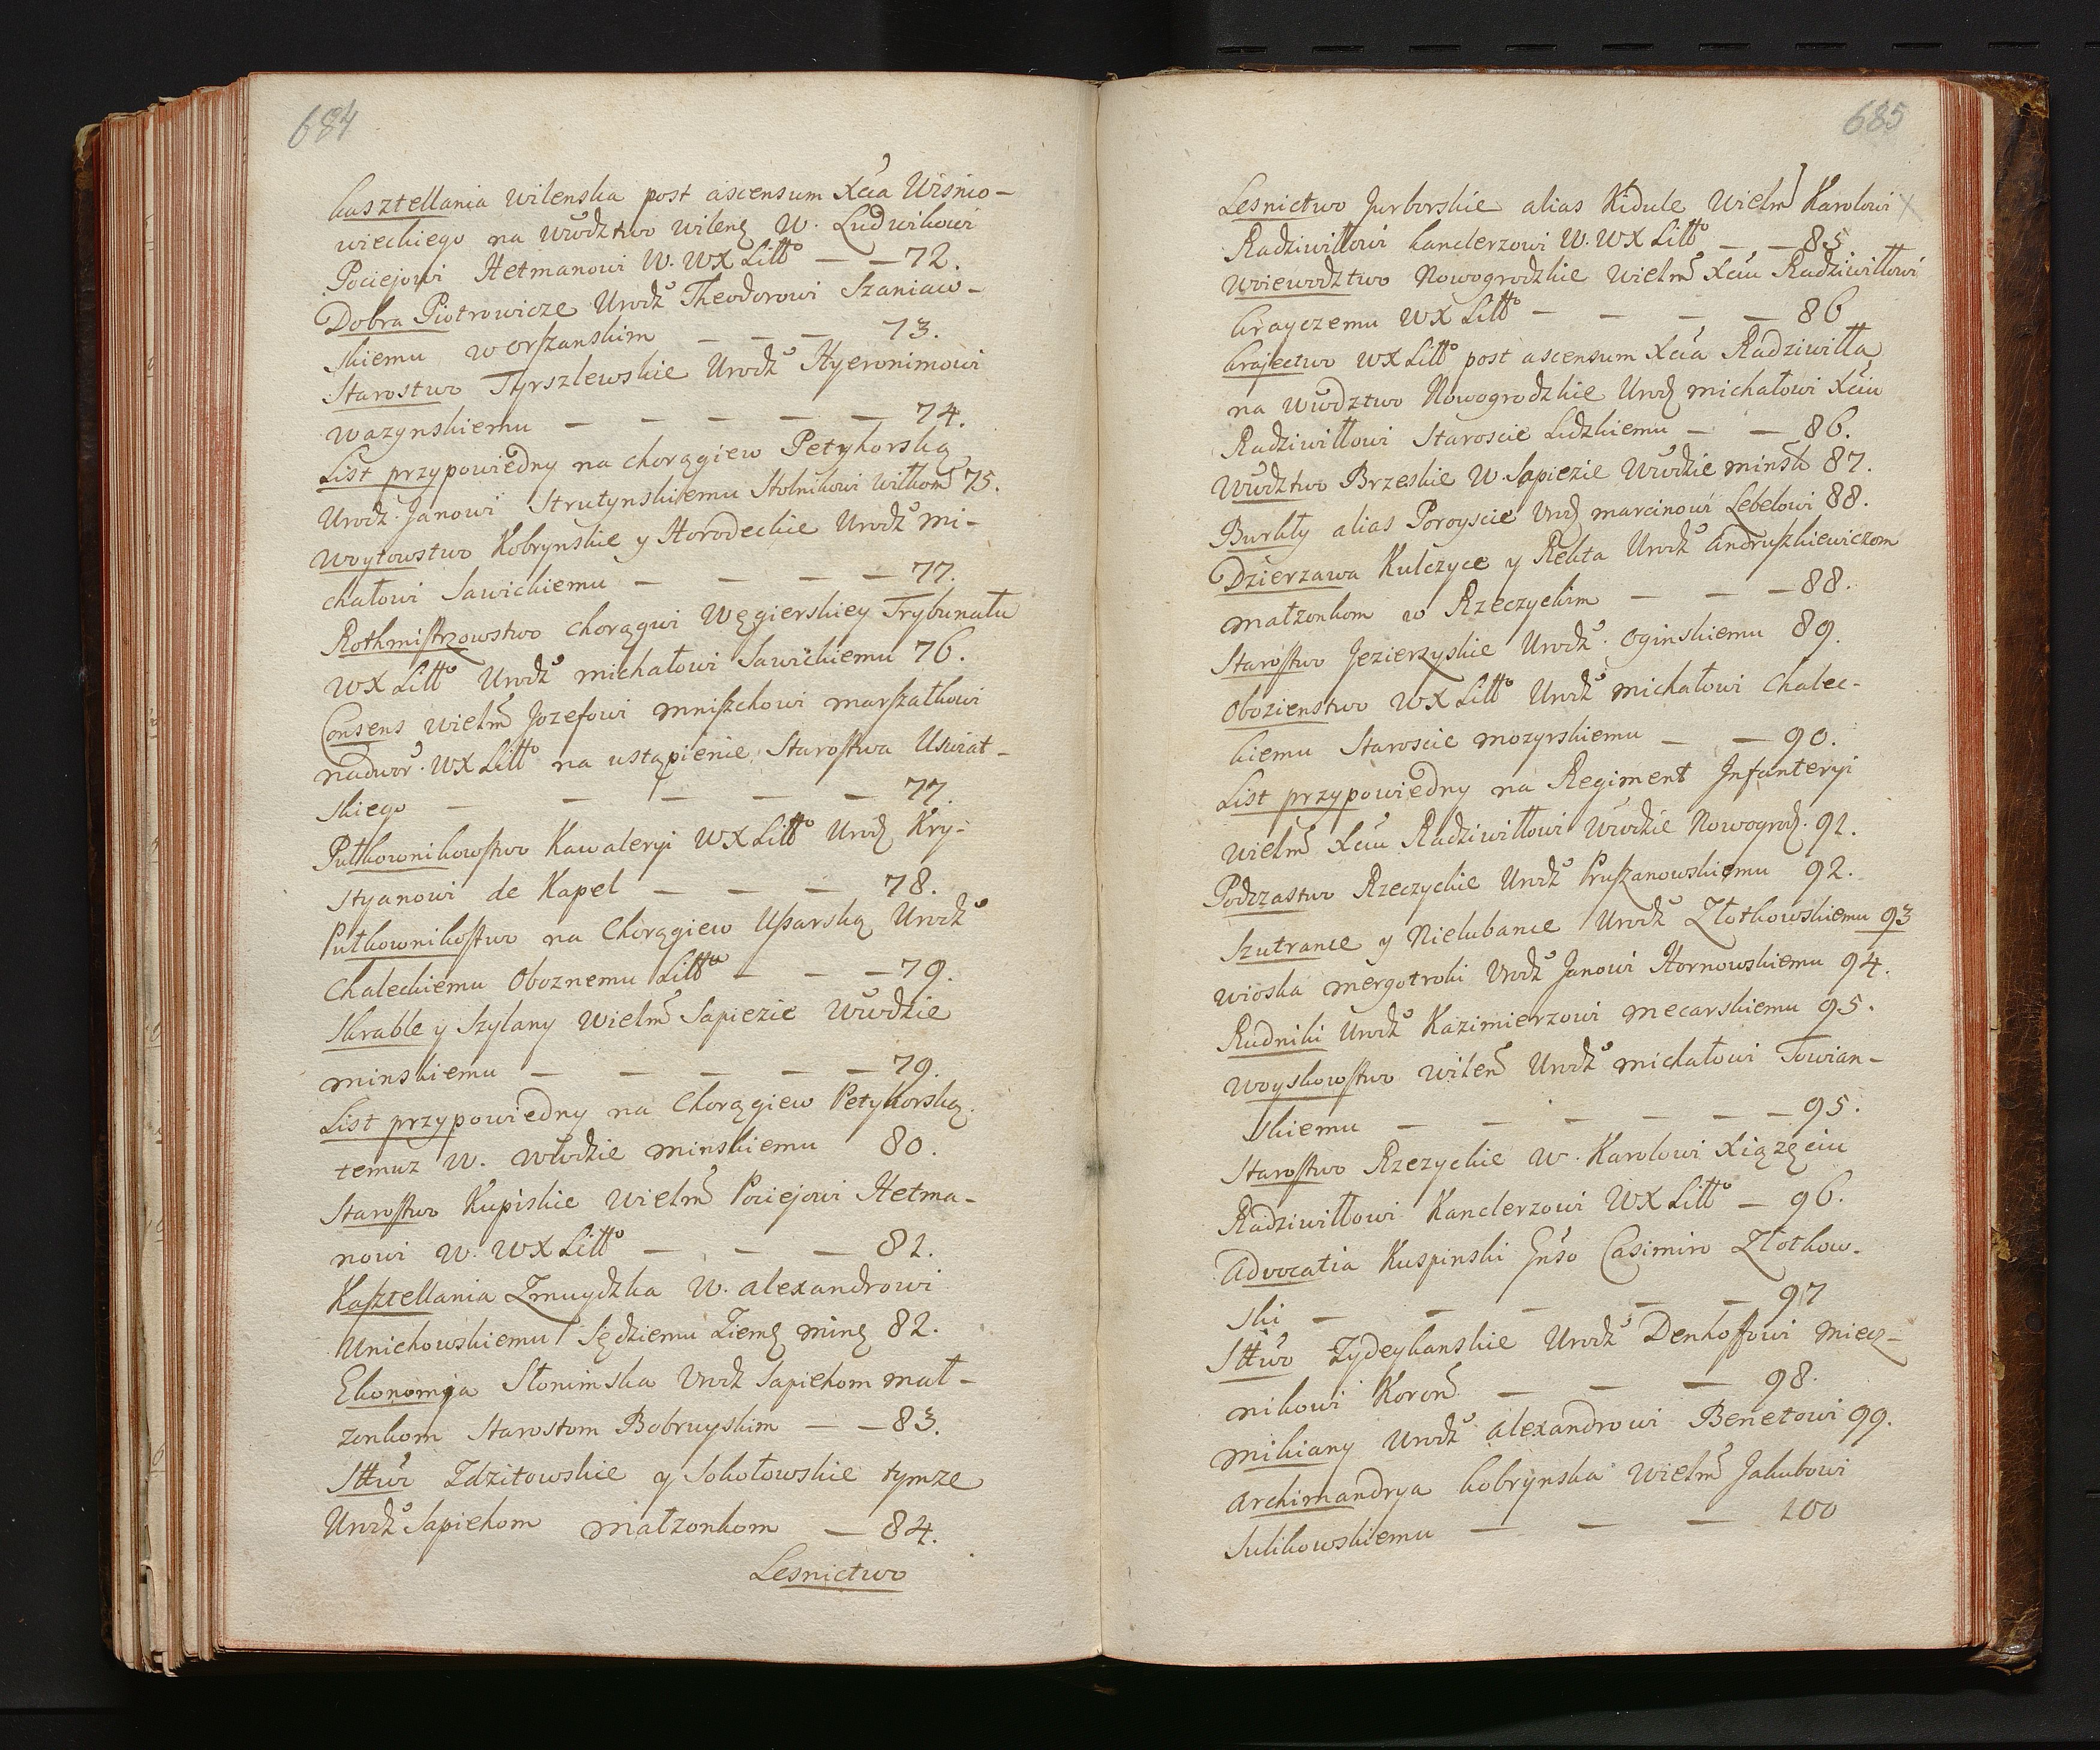 684
kasztellania Wilenska post ascensum Xcia Wisnio-
wieckiego na Wwdztwo Wileng W. Ludwikowi
Pociejowi Hetmanowi W. WXLitto — — 72.
Dobra Piotrowicze Urodz Theodorowi Szaniaw-
skiemu w orszanskim — — — 73.
Starostwo Tyrszlewskie Urodz Hyeronimowi
Wazynskiemu — — — — — 74.
List przypowiedny na chorągiew Petyhorską
Urodz. Janowi Strutynskiemu Stolnikowi Wilkom 75.
Woytowstwo Kobrynskie y Horodeckie Urodz Mi-
chałowi Sawickiemu — — — — 77.
Rothmistrzowstwo chorągwi Węgierskiey Trybunału
WXLitto Urodz Michałowi Sawickiemu 76.
Consens Wielm Jozefowi Mniszchowi Marszałkowi
nadwor. WXLitto na ustąpienie Starostwa Uswiat-
skiego — — — — — 77.
Pułkownikowstwo Kawaleryi WXLitto Urodz Kry-
styanowi de Kapel — — — 78.
Pułkownikostwo na Chorągiew Ussarską Urodz
Chaleckiemu Oboznemu Litto — — — 79.
Skrable y Szylany Wielm Sapiezie Wwdzie
minskiemu — — — — — 79.
List przypowiedny na Chorągiew Petyhorską.
temuz W. Wwdzie Minskiemu 80.
Starostwo Kupiskie Wielm Pociejowi Hetma-
nowi W. WXLitto — — — 81.
Kasztellania Zmuydzka W. Alexandrowi
Unichowskiemu Sędziemu Ziemg ming 82.
Ekonomija Słonimska Urodz Sapiehom mał-
zonkom Starostom Bobruyskim — — 83.
Sttwo Zdzitowskie y Sokołowskie tymze
Urodz Sapiehom małzonkom — 84.
Lesnictwo
685
Lesnictwo Jurborskie alias Kidule Wielm Karolowi X
Radziwiłłowi kanclerzowi W. WXLitto — — 85.
Woiewodztwo Nowogrodzkie Wielm Xciu Radziwiłłowi
krayczemu WXLitto — — — — 86
krajectwo WXLitto post ascensum Xcia Radziwiłła
na Wwdztwo Nowogrodzkie Urodz Michałowi Xciu
Radziwiłłowi Staroscie Lidzkiemu — — 86.
Wwdztwo Brzeskie W. Sapiezie Wwdzie minsk 87.
Burkły alias Poroyscie Urodz Marcinowi Lebelowi 88.
Dzierzawa Kulczyce y Rekta Urodz Andruszkiewiczom
małzonkom w Rzeczyckim — — — 88.
Starostwo Jezierzyskie Urodz. Oginskiemu 89.
Obozienstwo WXLitto Urodz Michałowi Chalec-
kiemu Staroscie mozyrskiemu — — 90.
List przypowiedny na Regiment Infanteryi
Wielm Xciu Radziwiłłowi Wwdzie Nowogrodz. 91.
Podczastwo Rzeczyckie Urodz Pruszanowskiemu 92.
Szutrance y Nielubance Urodz Złotkowskiemu 93
Wioska mergotroki Urodz Janowi Hornowskiemu 94.
Rudniki Urodz Kazimierzowi Mecarskiemu 95.
Woyskowstwo Wilen Urodz Michałowi Towian-
skiemu — — — — — — 95.
Starostwo Rzezyckie W. Karolowi Xiązęciu
Radziwiłłowi Kanclerzowi WXLitto — 96.
Advocatia Kuspinski Gnso Casimiro Złotkow-
ski — — — — — 97
Sttwo Zydeykanskie Urodz Denhoffowi Miecz-
nikowi Koron — — — 98.
Mikiany Urodz Alexandrowi Benetowi 99.
Archimandrya kobrynska Wielm Jakubowi
Sulikowskiemu — — — 100